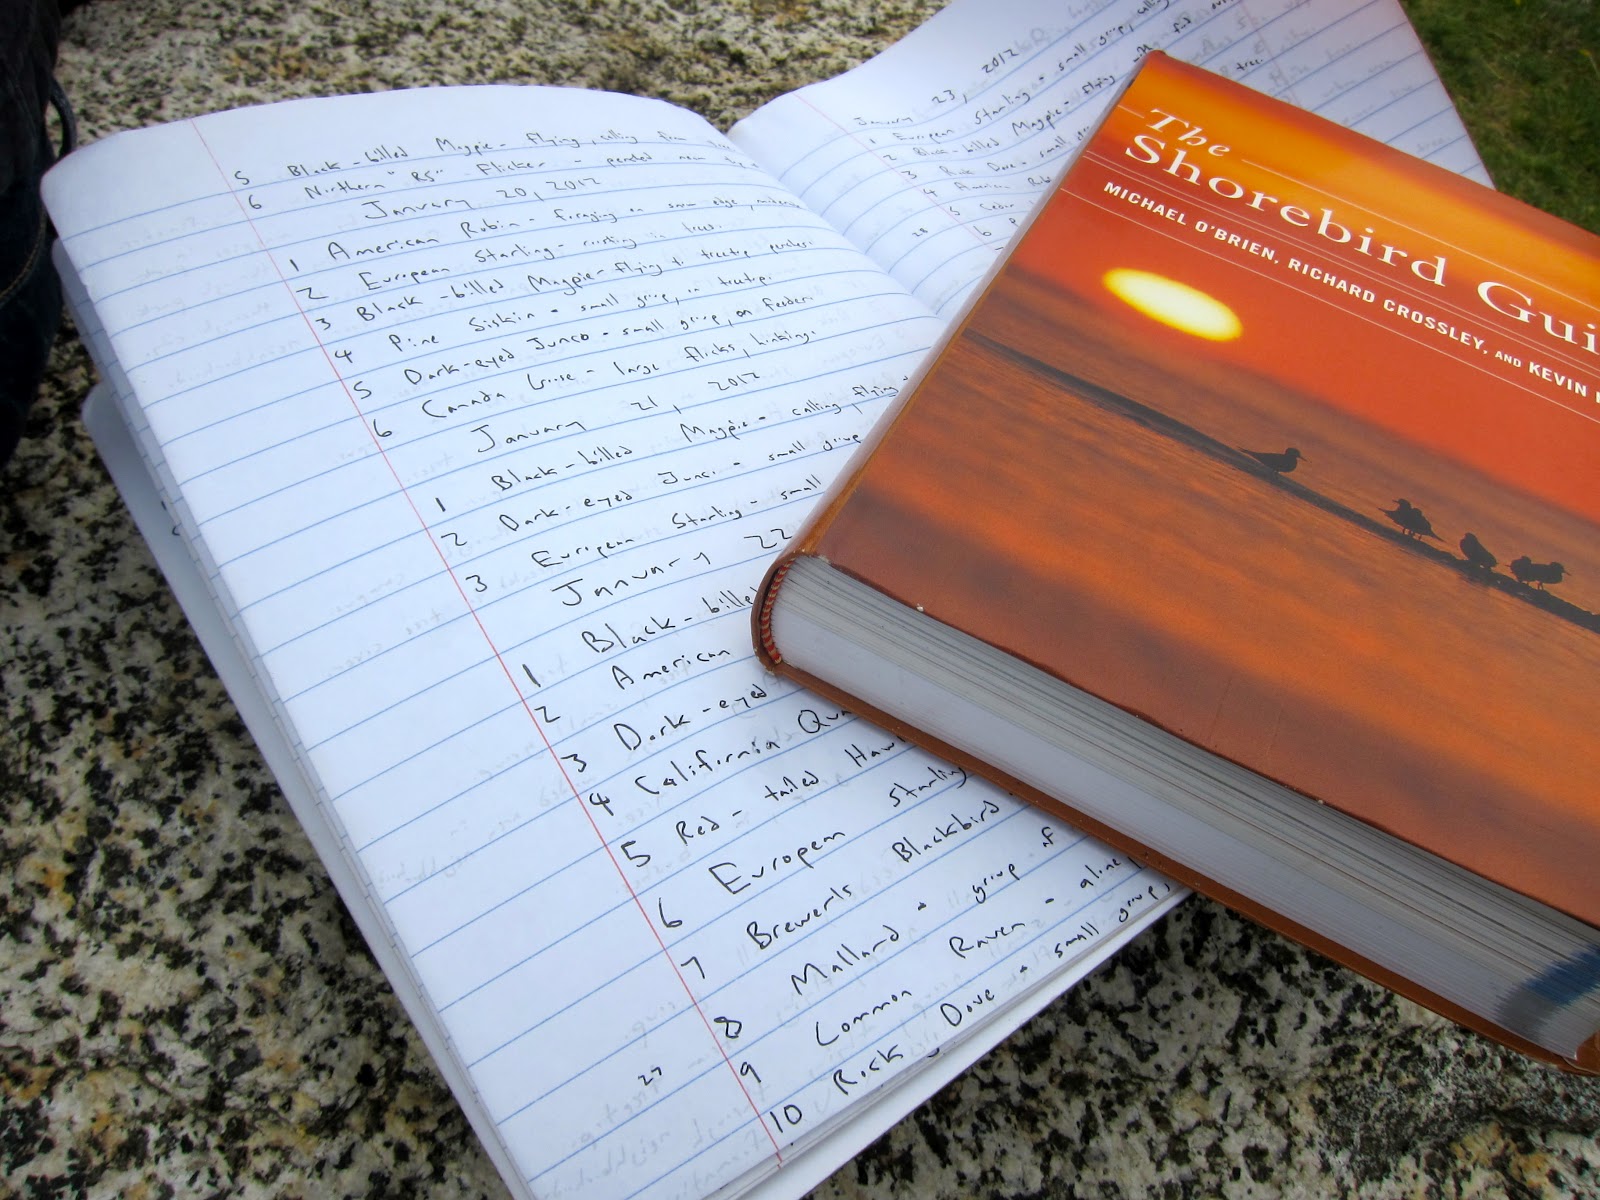 5 Black-billed Magpie - flying, calling from tree
6 Northern "RS" Flicker - perched near
January 20, 2012
1 American Robin - foraging on snow edge,
2 European Starling - in tree.
3 Black-billed Magpie - flying to treetop perches.
4 Pine Siskin - small group, in treetop.
5 Dark-eyed Junco - small group, on feeder.
6 Canada Goose - large flocks, honking.
January 21, 2012
1 Black-billed Magpie - calling, flying
2 Dark-eyed Junco - small group
3 European Starling - small
January 22
1 Black-billed
2 American
3 Dark-eyed
4 California
5 Red-tailed
6 European Starling
7 Brewer's Blackbird
8 Mallard - group of
9 Common Raven - alone
10 Rock Dove - small group,
27
January 23, 2012
1 European Starling - small group, calling
2 Black-billed Magpie - flying
tree.
3 Rock Dove - small
4 American
5 Cedar
6
28
The
Shorebird Gui
MICHAEL O'BRIEN, RICHARD CROSSLEY, AND KEVIN